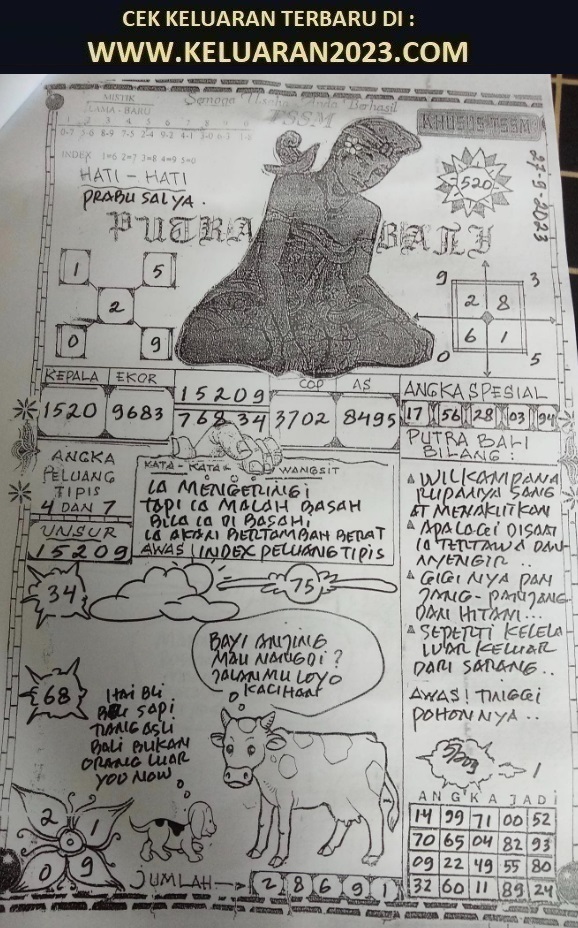 CEK KELUARAN TERBARU DI :
WWW.KELUARAN2023.COM
MISTIK
LAMA - BARU
Semoga Usaha Anda Berhasil
TSSM
KHUSUS TSSM
27-9-2023
INDEX 1=6 2=7 3=8 4=9 5=0
HATI - HATI
PRABU SALYA.
520
PUTRA BALI
1 5
2
0 9
9 3
2 8
6 1
0 5
KEPALA EKOR 15209 COP AS
1520 9683 76834 3702 8495
ANGKA SPESIAL
17 56 28 03 94
ANGKA
PELUANG
TIPIS
4 DAN 7
UNSUR
15209
KATA - KATA WANGSIT
IA MENGERINGI
TAPI IA MALAH BASAH
BILA IA DI BASAHI
IA AKAN BERTAMBAH BERAT
AWAS INDEX PELUANG TIPIS
PUTRA BALI
BILANG :
WILKAMPANA
RUPANYA SANG
AT MENAKUTKAN
APALAGI DISAAT
IA TERTAWA DAN
NYENGIR ..
GIGI NYA PAN
JANG - PANJANG
DAN HITAM...
SEPERTI KELELA
WAR KELUAR
DARI SARANG..
AWAS! TINGGI
POHONNYA ..
34
75
68
BAYI ANJING
MAU NANGDI ?
JALANMU LOYO
KACIHAN
HAI BLI
BELI SAPI
TIANG ASLI
BALI BUKAN
ORANG LUAR
YOU NOW
2 1
0 9
JUMLAH 2 8 6 9 1
5209 - 1
ANGKA JADI
14 99 71 00 52
70 65 04 82 93
09 22 49 55 80
32 60 11 89 24